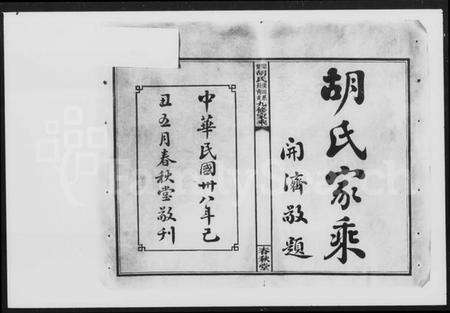 胡氏家乘
開濟敬題
胡氏
九修家乘
春秋堂
中華民國卅八年己
丑五月春秋堂敬刊